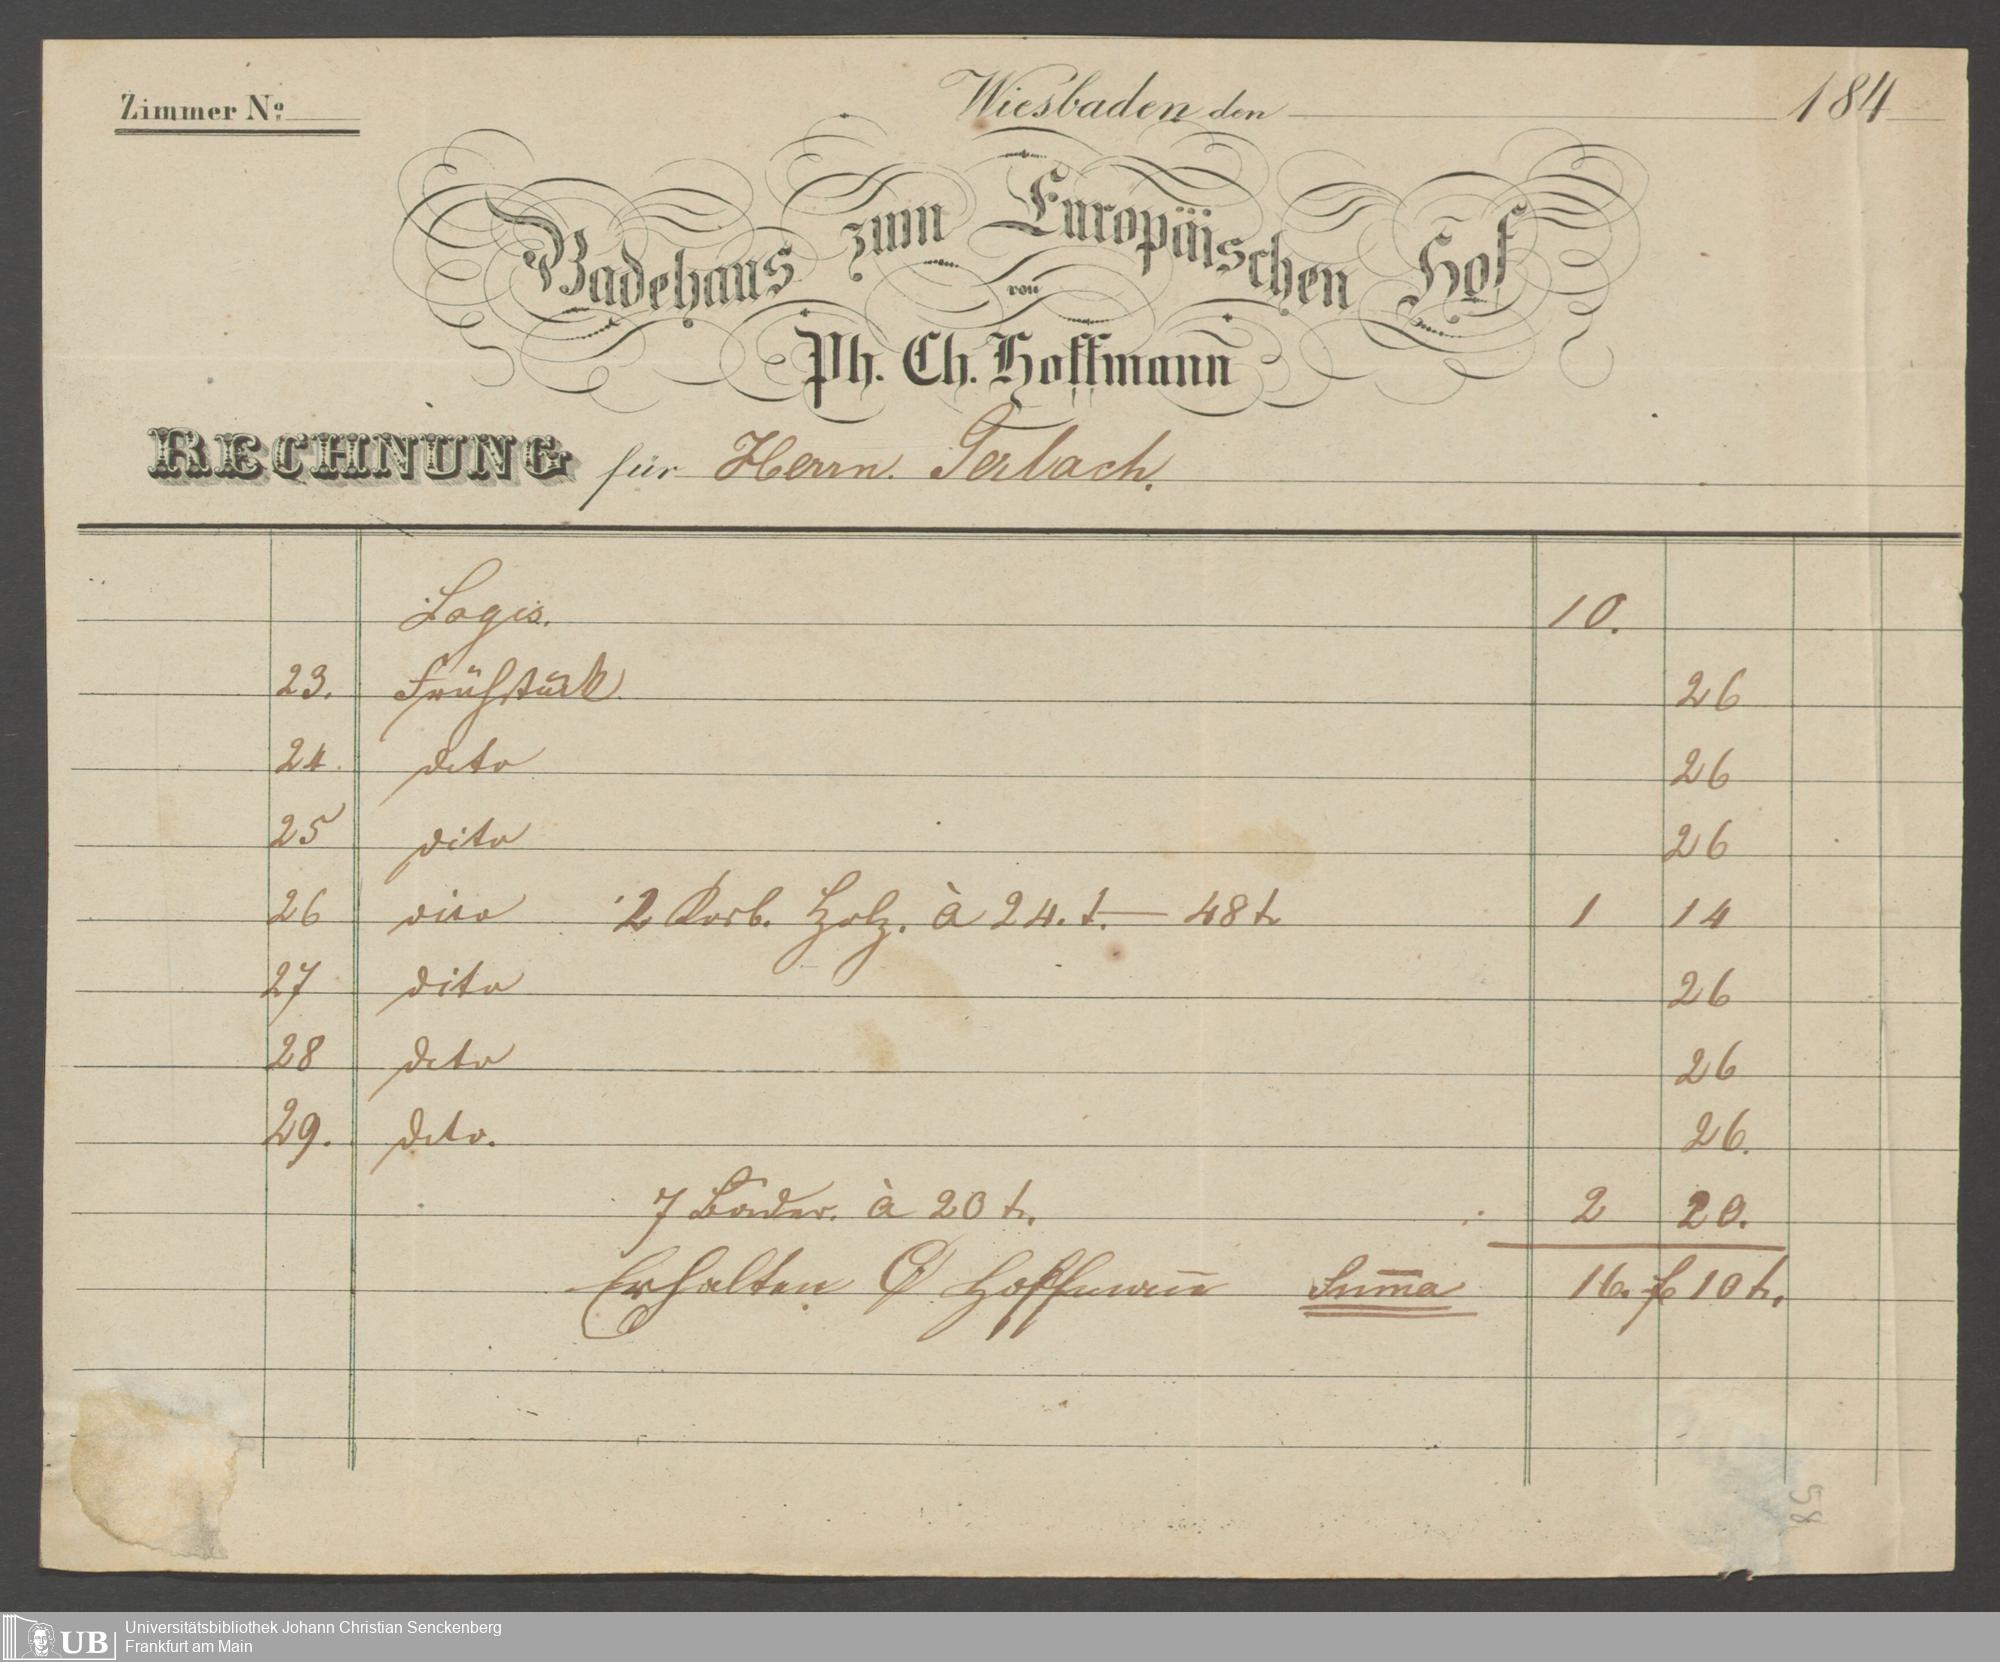 Zimmer No.
Wiesbaden den 184
Badehaus zum Europäischen Hof
von
Ph. Ch. Hoffmann
RECHNUNG für Herrn. Gerlach.
Logis. 10.
23. Frühstück 26
24. deto 26
25 dito 26
26 dito 2 Korb. Holz. à 24. x. — 48 x 1 14
27 dito 26
28 deto 26
29. deto. 26.
7 Bäder. à 20 x. 2 20.
Erhalten Hoffmann Summa 16. f 10 x.
58
UB
Universitätsbibliothek Johann Christian Senckenberg
Frankfurt am Main